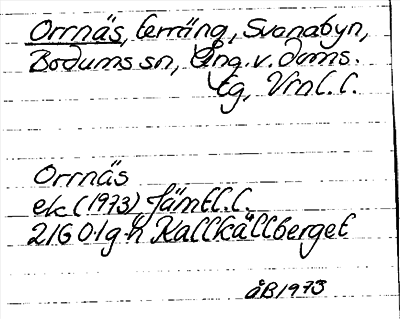 Orrnäs, terräng, Svanabyn,
Bodums sn, Ång. v. doms.
tg, Vrnl. l.
Orrnäs
ek (1973) Jämtl. l.
21G 0-1 g-h Kallkällberget
åB 1973